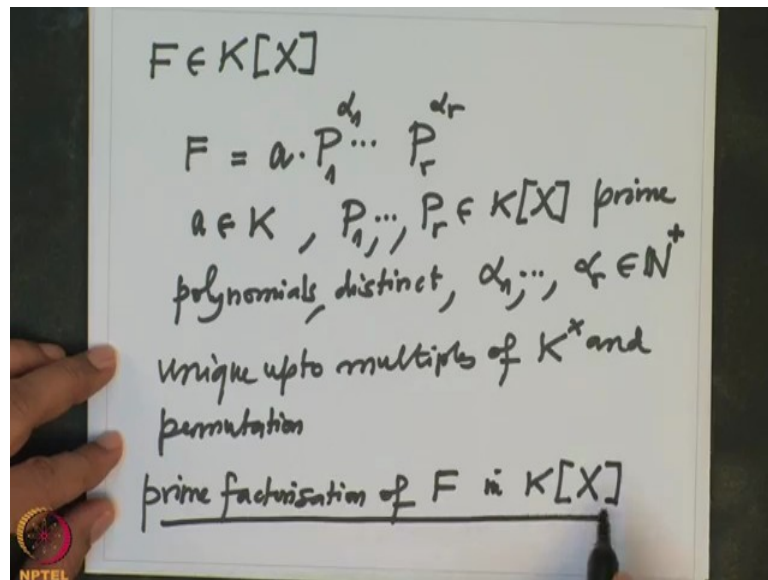 F ∈ K[X]
F = a · P₁^α₁ ⋯ P_r^α_r
a ∈ K , P₁, ⋯, P_r ∈ K[X] prime
polynomials, distinct, α₁, ⋯, α_r ∈ ℕ⁺
unique upto multiples of K^× and
permutation
prime factorisation of F in K[X]
NPTEL